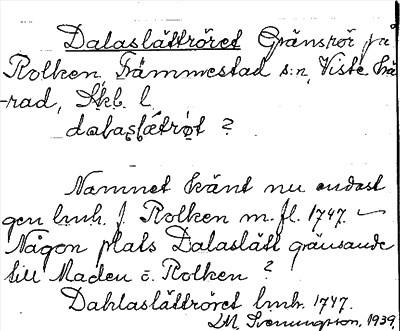 Dalaslättröret Gränsrör på
Rolken, Främmestad s:n, Viste hä
-rad, Skb. l.
dalaslätrøt ?
Namnet känt nu endast
gen lmh. f. Rolken m. fl. 1747.
Någon plats Dalaslätt gränsande
till Maden o. Rolken ?
Dahlaslättröret lmh. 1747.
LM. Svenungsson, 1939.